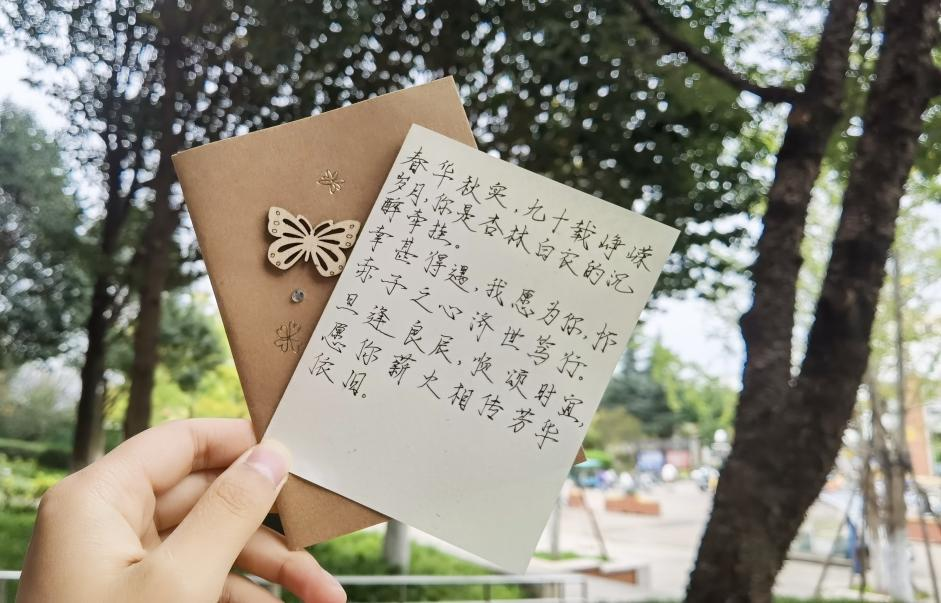 春华秋实，九十载峥嵘
岁月，你是杏林白衣的沉
醉牵挂。
幸甚得遇，我愿为你，怀
赤子之心济世笃行。
旦逢良辰，顺颂时宜，
愿你薪火相传芳华
依旧。